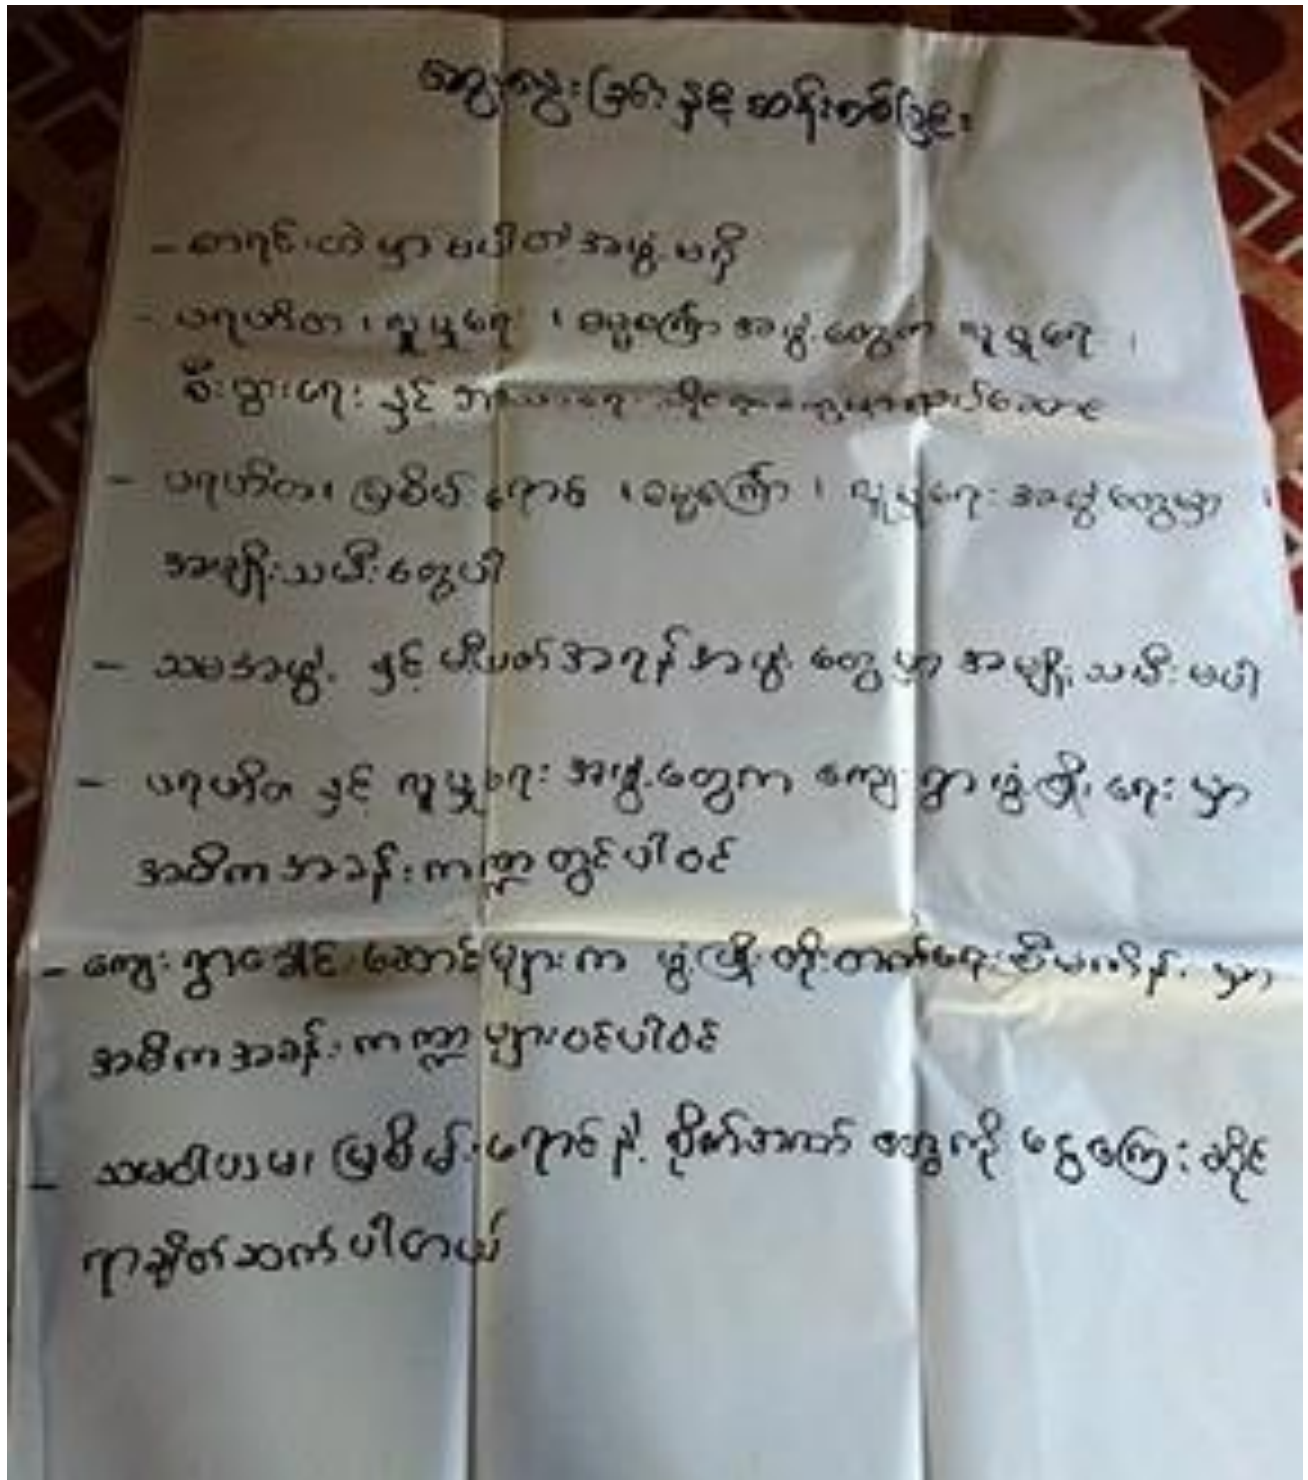 ဆွေးနွေးခြင်း နှင့် ဆန်းစစ်ခြင်း
- စာရင်းထဲမှာ မပါတဲ့ အဖွဲ့ မရှိ
- ပရဟိတ ၊ လူမှုရေး ၊ ဓမ္မကြော အဖွဲ့တွေက လူမှုရေး ၊
စီးပွားရေး နှင့်
- ပရဟိတ ၊ မြစိမ်းရောင် ၊ ဓမ္မကြော ၊ လူမှုရေး အဖွဲ့တွေမှာ ၊
အမျိုးသမီးတွေပါ
- သမအဖွဲ့ နှင့် မီးသတ်အရန်အဖွဲ့ တွေမှာ အမျိုးသမီး မပါ
- ပရဟိတ နှင့် လူမှုရေး အဖွဲ့တွေက ကျေးရွာဖွံ့ဖြိုးရေးမှာ
အဓိကအခန်းကဏ္ဍတွင်ပါဝင်
- ကျေးရွာခေါင်းဆောင်များက ဖွံ့ဖြိုးတိုးတက်ရေးစီမံကိန်းမှာ
အဓိကအခန်းကဏ္ဍများဝင်ပါဝင်
- သမဝါယမ၊ မြစိမ်းရောင်နဲ့ စိုက်အထက် တွေကို ငွေကြေးခိုင်
ရာချိတ်ဆက်ပါတယ်